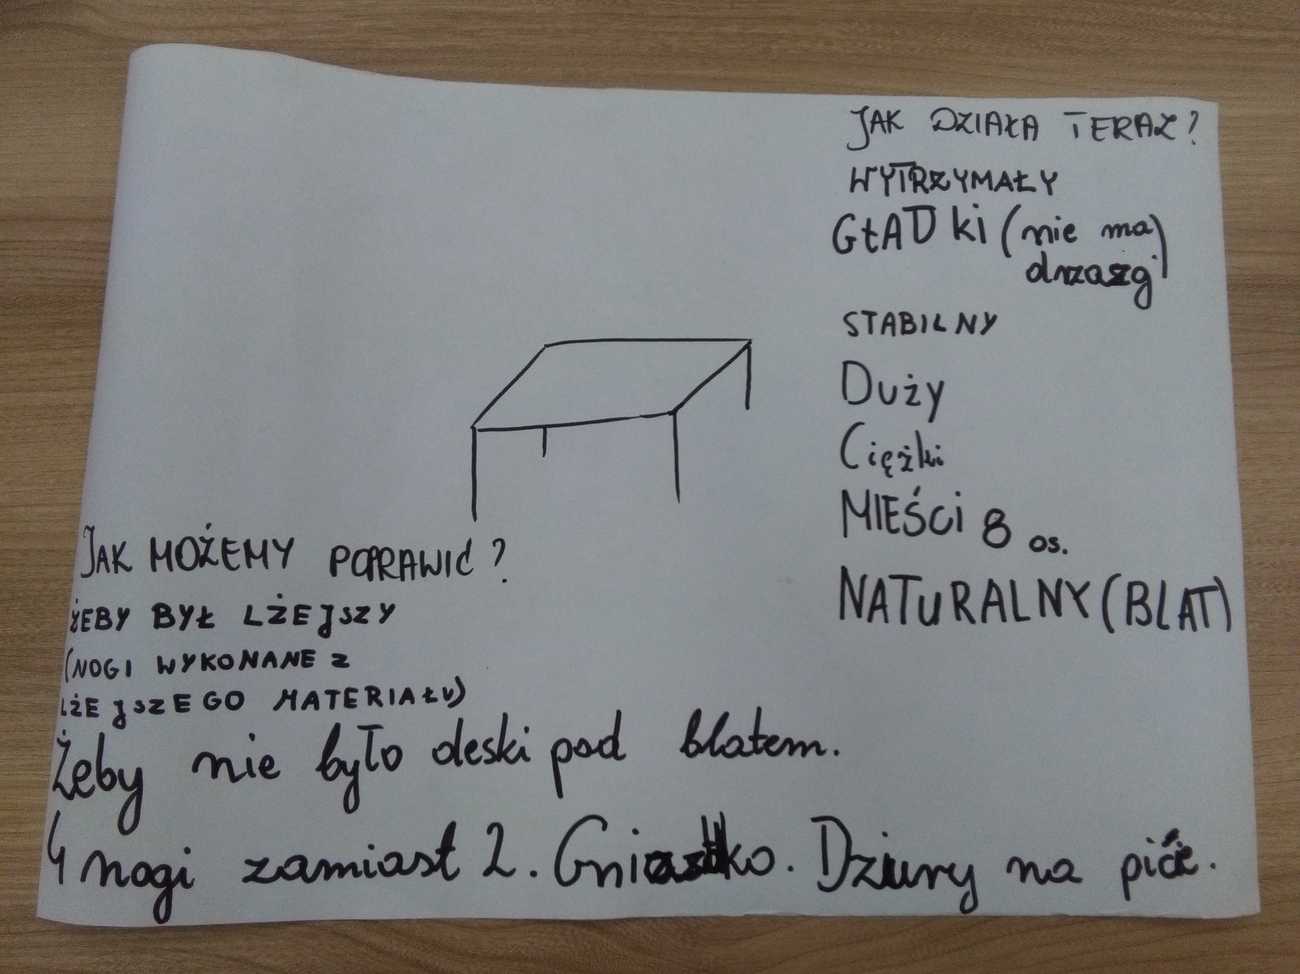 JAK DZIAŁA TERAZ?
WYTRZYMAŁY
GŁADki (nie ma
drzazg)
STABILNY
Duży
Ciężki
MIEŚCi 8 os.
NATURALNY (BLAT)
JAK MOŻEMY POPRAWIĆ?
ŻEBY BYŁ LŻEJSZY
(NOGI WYKONANE Z
LŻEJSZEGO MATERIAŁU)
Żeby nie było deski pod blatem.
4 nogi zamiast 2. Gniazdko. Dziury na picie.